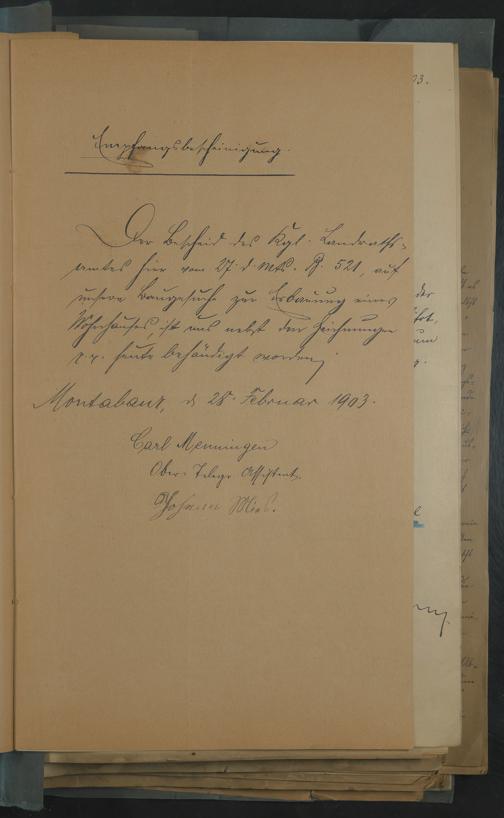 Empfangsbescheinigung.
Der Bescheid des Kgl. Landraths-
amtes hier vom 27. d. Mts. B. 521, auf
unsere Baugesuche zur Erbauung eines
Wohnhauses, ist uns nebst den Zeichnungen
p.p. heute behändigt worden,
Montabaur, d 28. Februar 1903.
Carl Menningen
Ober-Telegr Assistent.
Johann